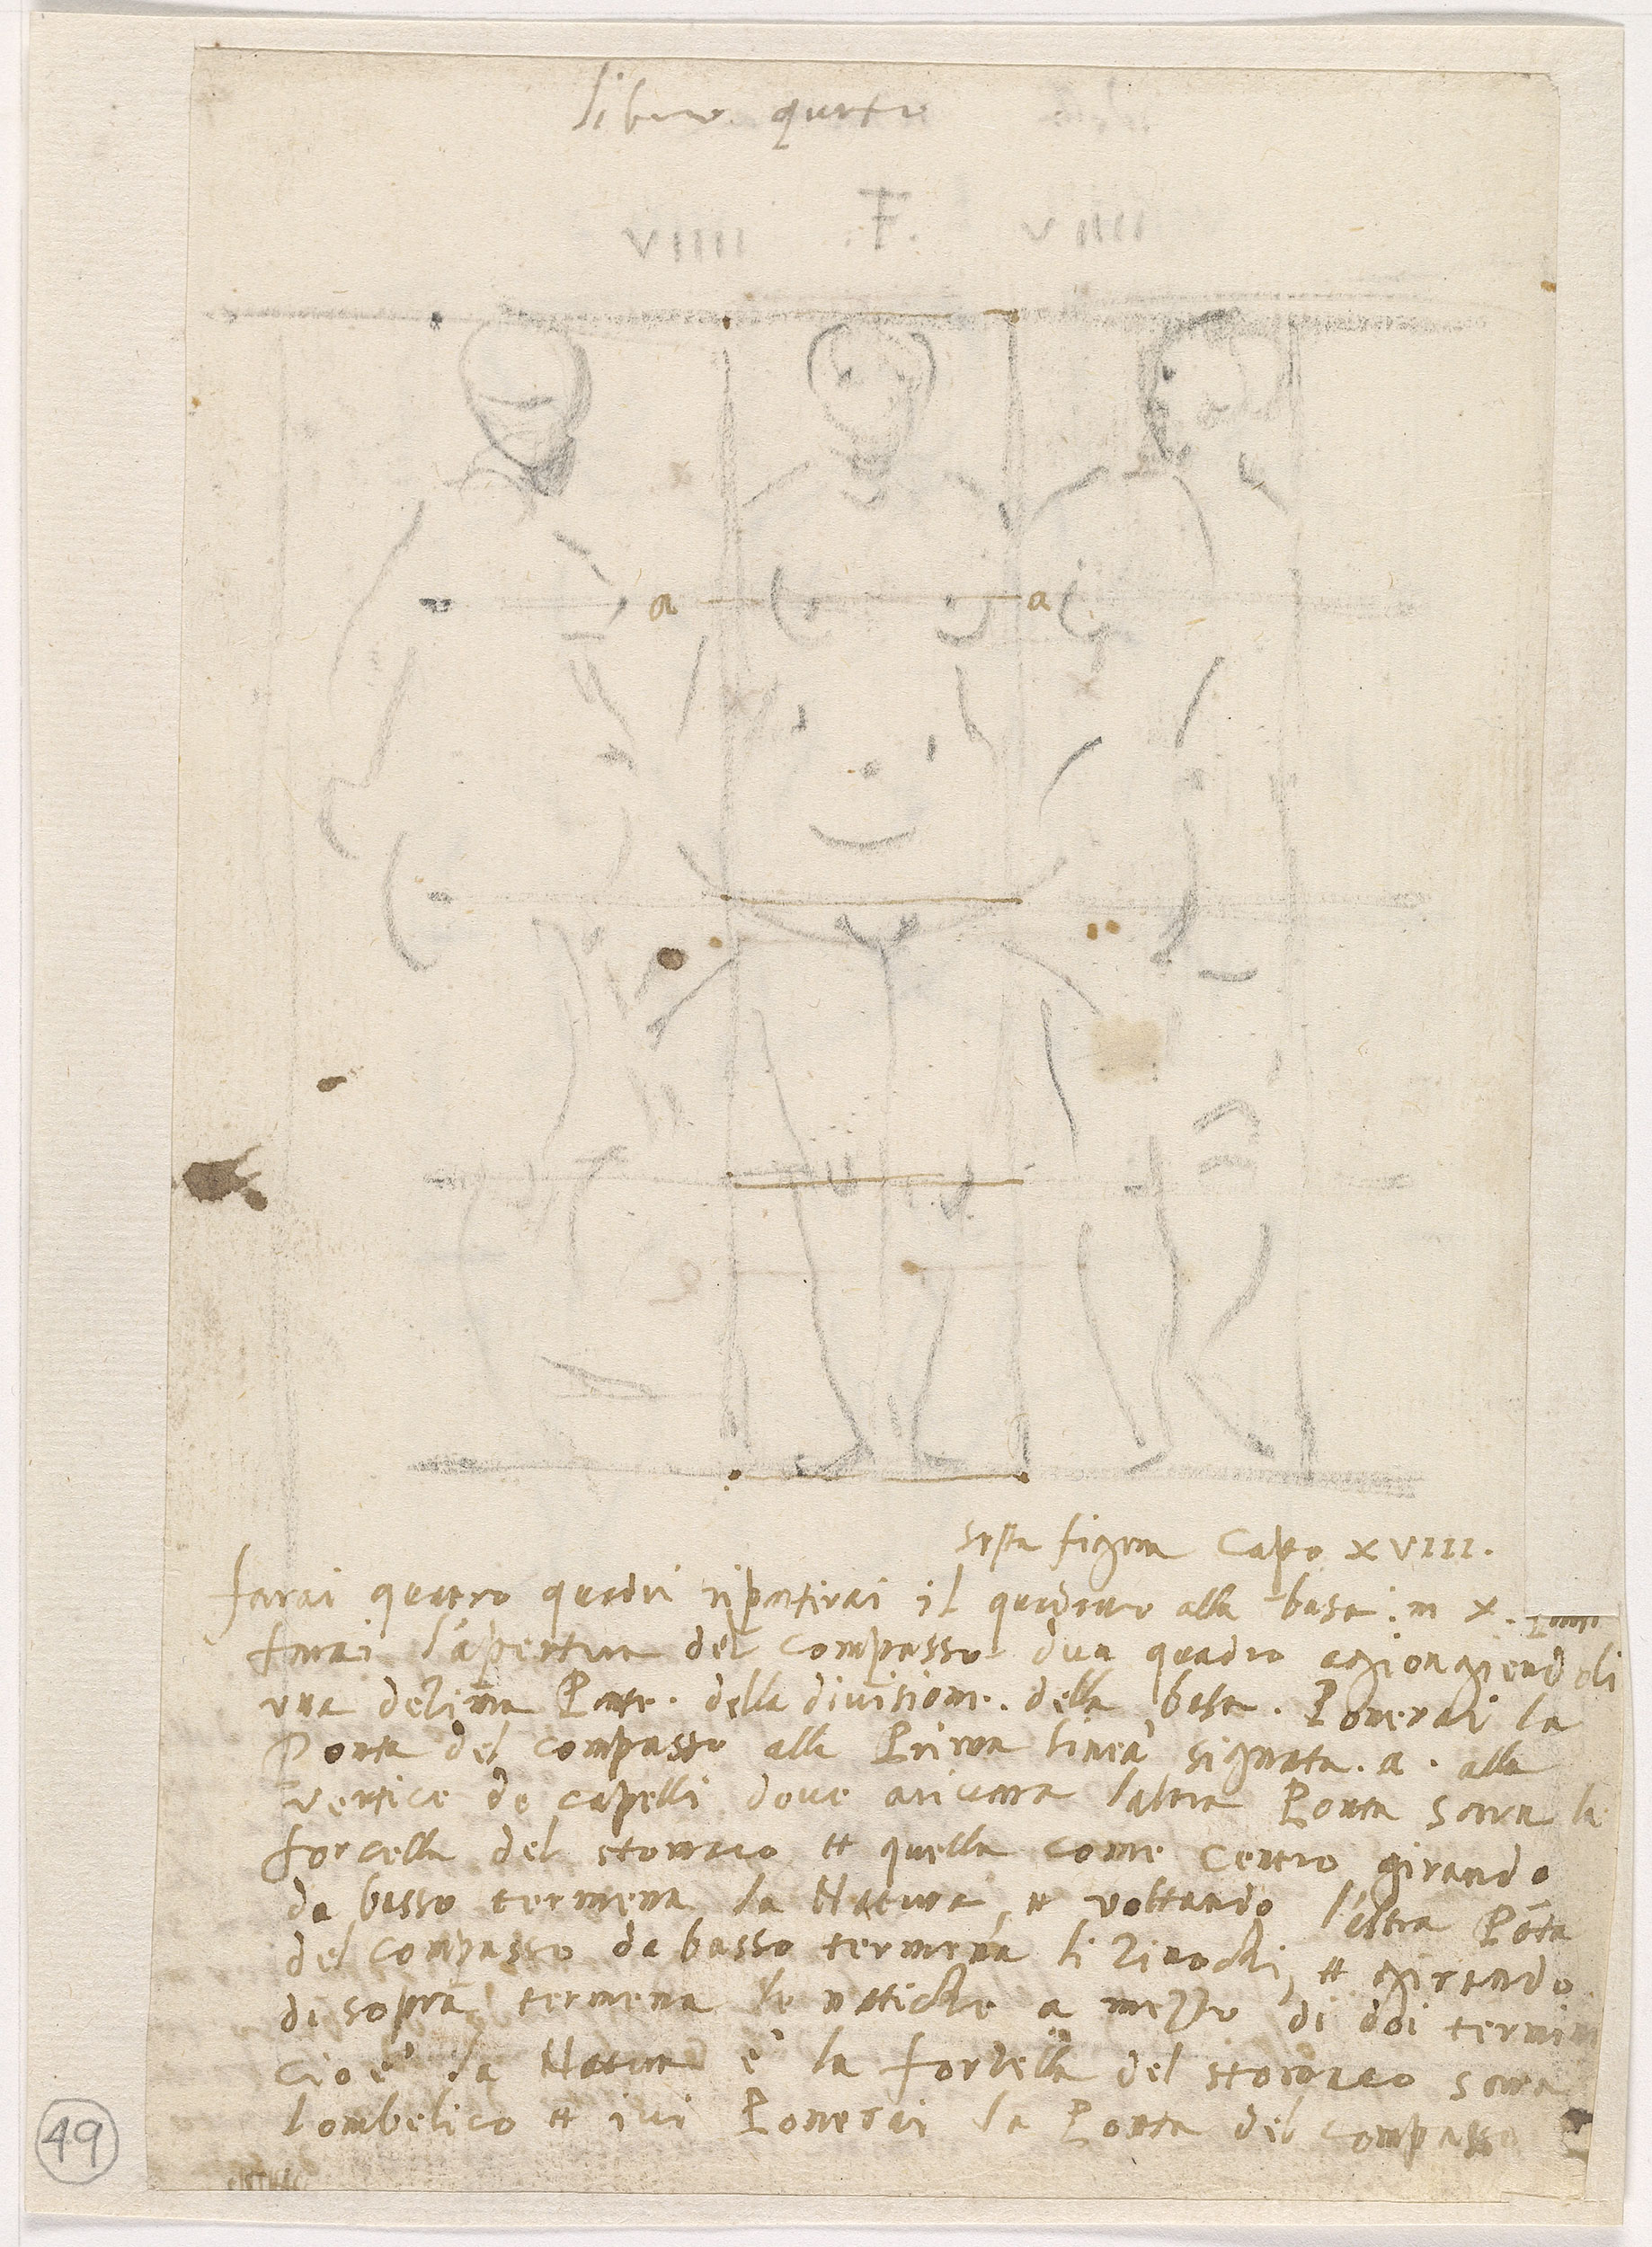 libro qurto
VIIII .F. VIIII
a a
figura Capo XVIII.
farai quatro quadri ripartirai il quadro alla basa. in X.
farai l'apertura del compasso dun quadro agiongiendoli
una decima Parte. della divisione. della basa. Ponerai la
Ponta del compasso alla Prima linea signata. a. alla
vertice de capelli dove arivara l'altra Ponta sara la
forcella del stomaco et quella come Centro girando
da basso termena la Natura, et voltando l'altra Pōta
del compasso da basso termena li zinochi, et girando
di sopra termena le natiche a mezzo di doi termini
Cioe' la Natura è la forcella del stomaco sara
lombelico et ivi Ponerai la Ponta del compasso
49